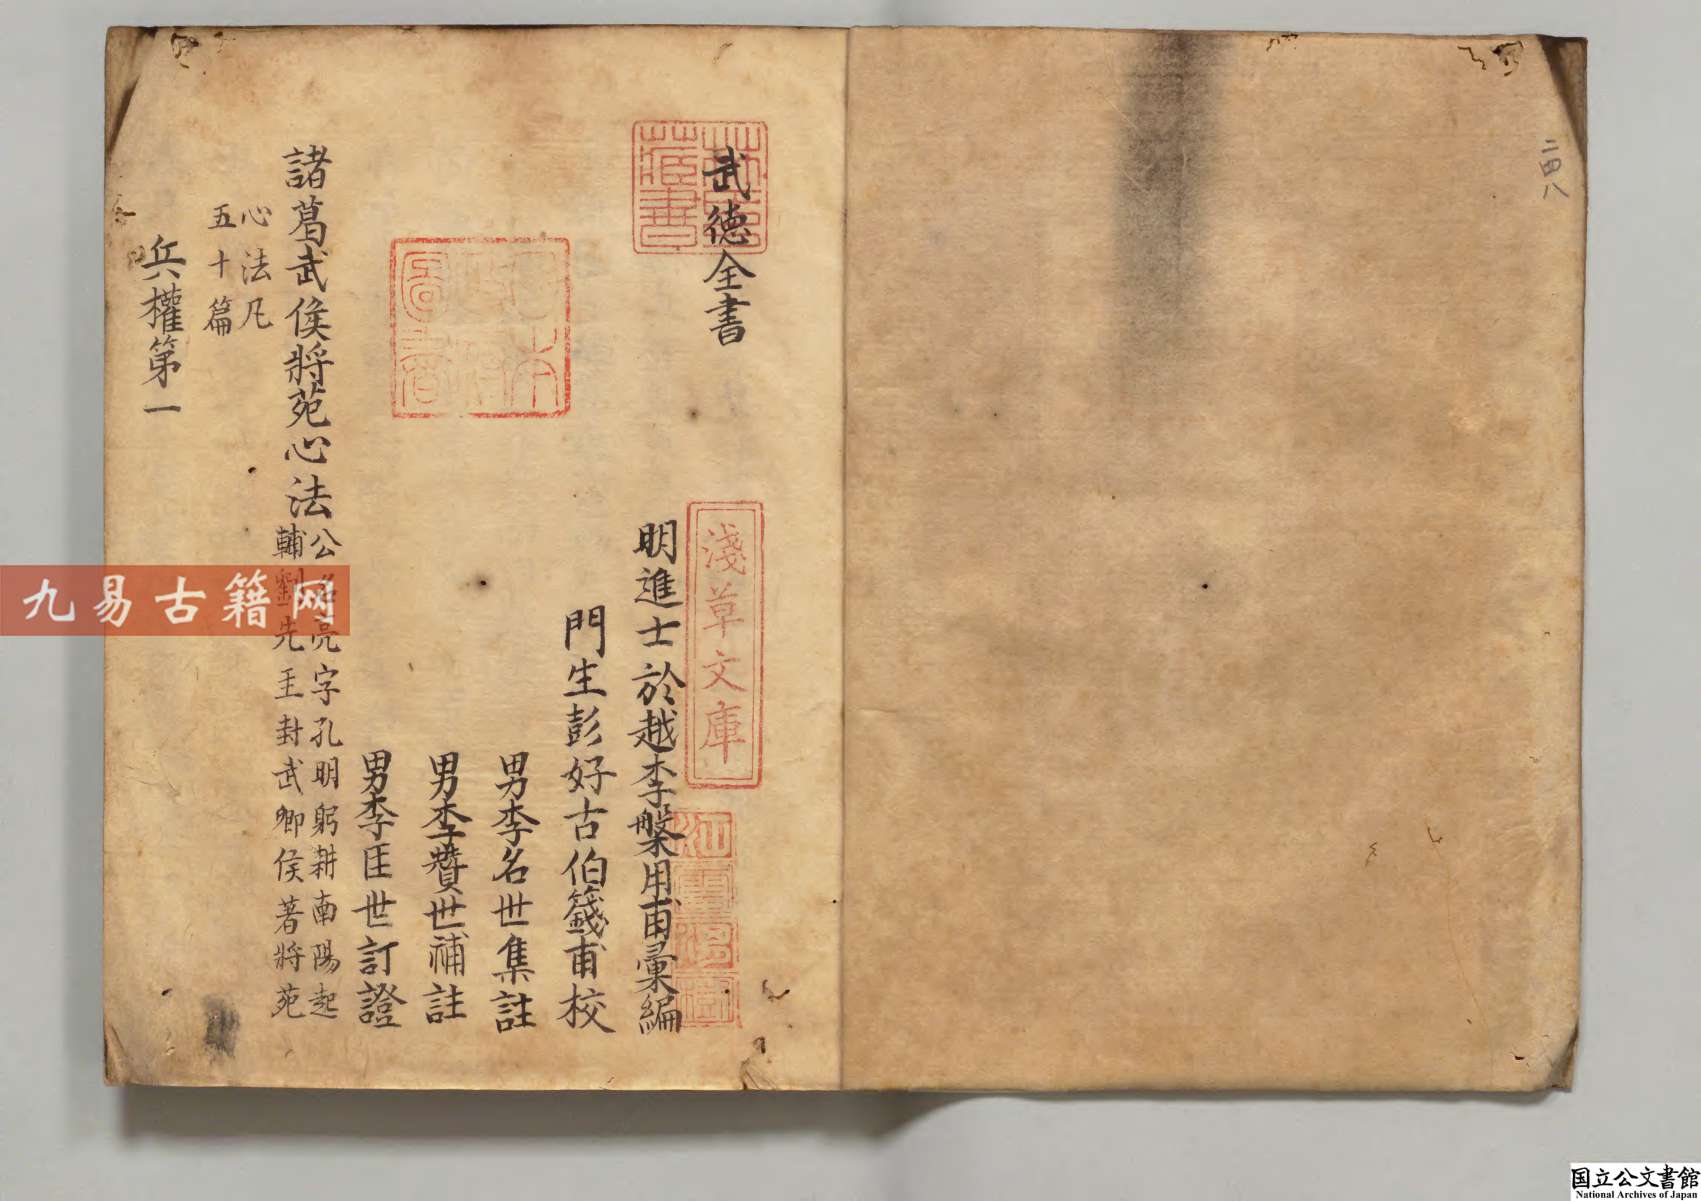 二四八
武德全書
明進士於越李槃用甫彙編
門生彭好古伯籛甫校
男李名世集註
男李贊世補註
男李匡世訂證
諸葛武侯將苑心法
公名亮字孔明躬耕南陽起
輔劉先王封武卿侯著將苑
心法凡
五十篇
兵權第一
淺草文庫
藏書
日本
九易古籍网
国立公文書館
National Archives of Japan